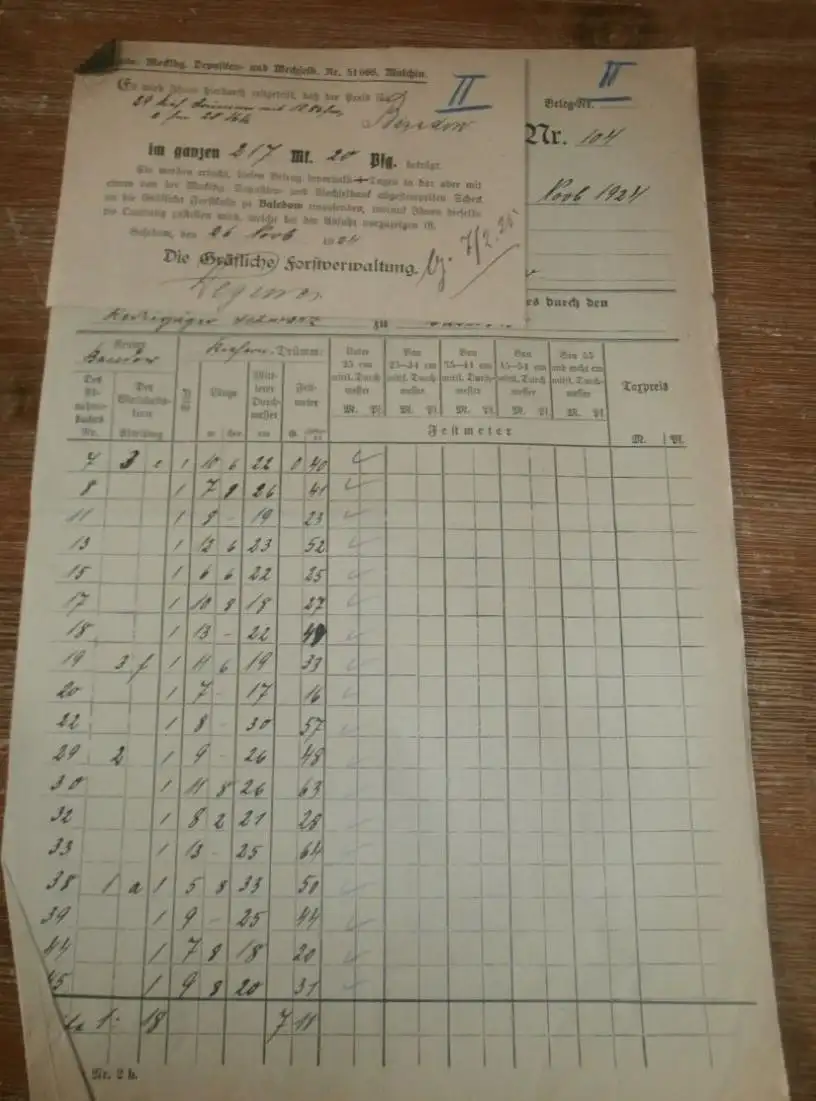 Mecklbg. Depositen- und Wechselb. Nr. 51666, Malchin.
II
Es wird Ihnen hierdurch mitgeteilt, daß der Preis für
im ganzen 217 Mk. 20 Pfg. beträgt.
Sie werden ersucht, diesen Betrag innerhalb Tagen in bar oder mit
einem von der Mecklbg. Depositen- und Wechselbank abgestempelten Scheck
an die Gräfliche Forstkasse zu Basedow einzusenden, worauf Ihnen derselbe
die Quittung zustellen wird, welche bei der Abfuhr vorzuzeigen ist.
Basedow, den 26 Novb 1924
Die Gräfliche Forstverwaltung.
II
Beleg-Nr.
Nr. 104
Novb 1924
es durch den
zu
Kiefern-Trümm:
Des Abnahmebuches Nr.
Der Wirtschaftskarte Abteilung
Stück
Länge m
Mittlerer Durchmesser cm
Festmeter
Unter 25 cm mittl. Durchmesser M. Pf.
Von 25—34 cm mittl. Durchmesser M. Pf.
Von 35—44 cm mittl. Durchmesser M. Pf.
Von 45—54 cm mittl. Durchmesser M. Pf.
Von 55 und mehr cm mittl. Durchmesser M. Pf.
Taxpreis M. Pf.
Festmeter
7 3 c 1 10 6 22 0 40
8 1 7 8 26 41
11 1 8 - 19 23
13 1 12 6 23 52
15 1 6 6 22 25
17 1 10 8 18 27
18 1 13 - 22 49
19 3 f 1 11 6 19 33
20 1 7 - 17 16
22 1 8 - 30 57
29 2 1 9 - 26 48
30 1 11 8 26 63
32 1 8 2 21 28
33 1 13 - 25 64
38 1 a 1 5 8 33 50
39 1 9 - 25 44
44 1 7 8 18 20
45 1 9 8 20 31
1: 18 7 11
Nr. 2 h.